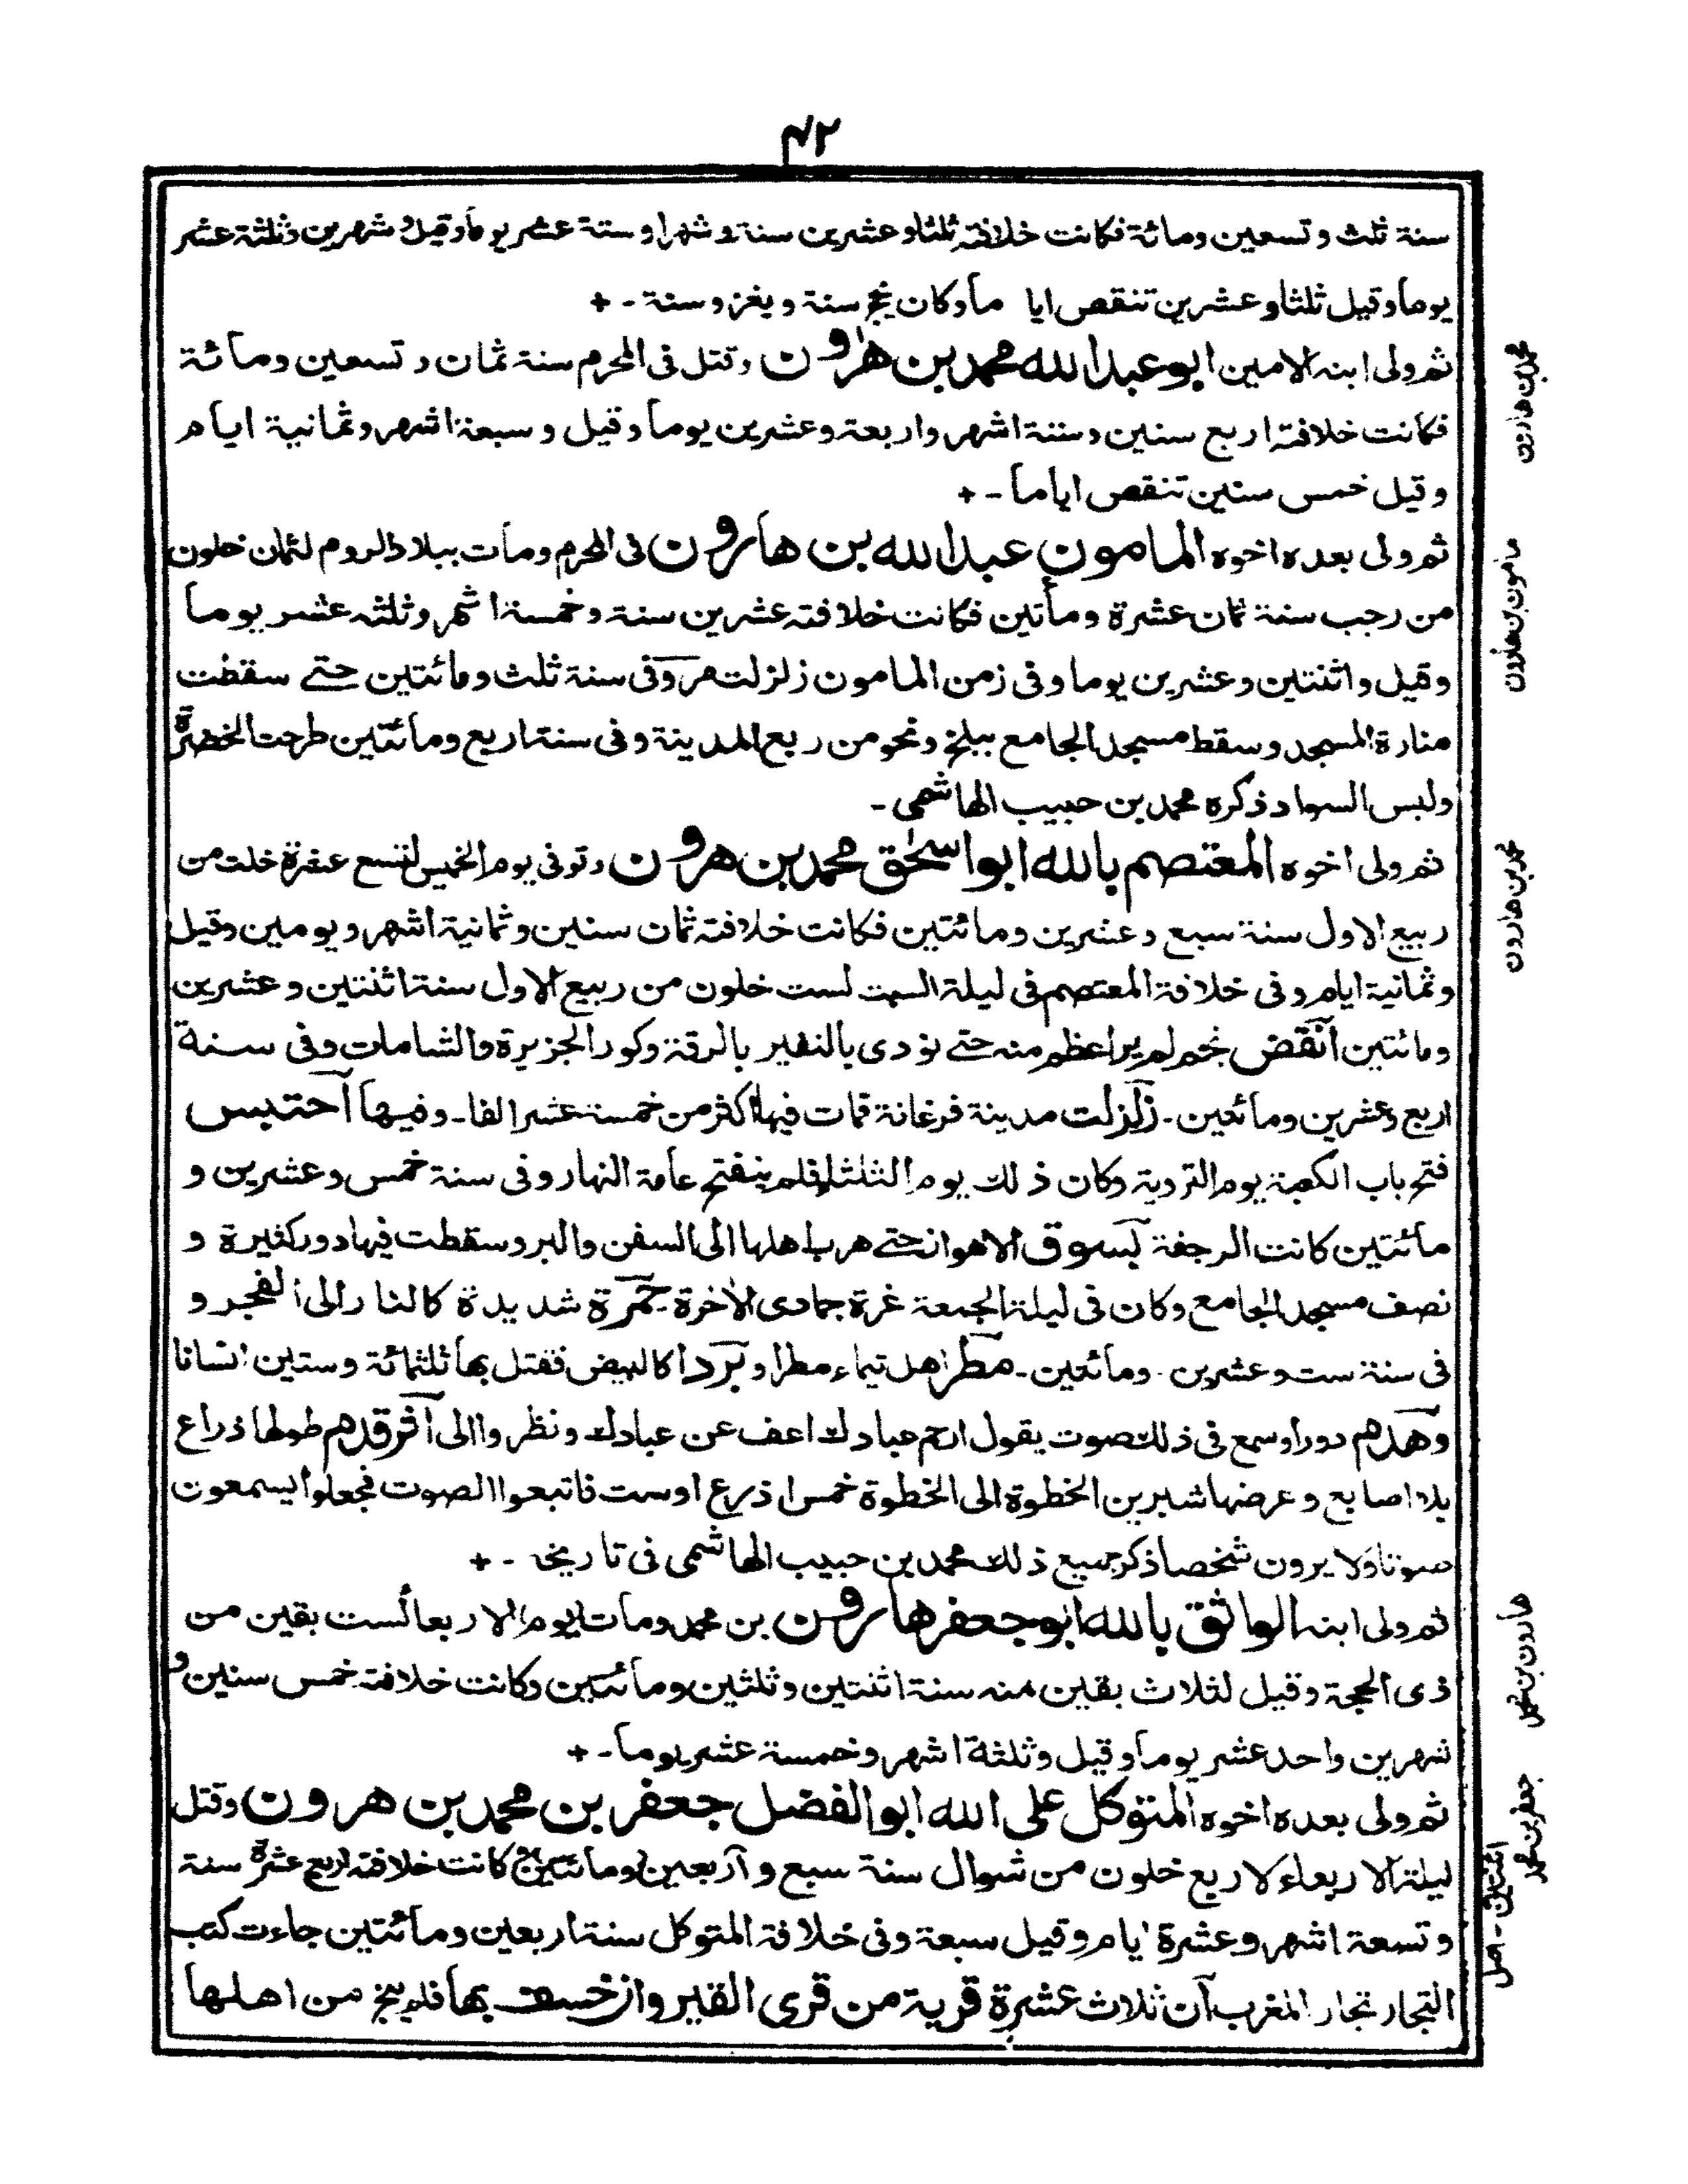 ٤٢
سنة ثلث و تسعين ومائة فكانت خلافته ثلثا و عشرين سنة و شهرا و ستة عشر يوما وقيل و شهرين وثلثة عشر
يوما وقيل ثلثا و عشرين تنقص ايا ما وكان يحج سنة و يغزو سنة - +
ثم ولى ابنه الامين ابو عبد الله محمد بن هرون وقتل فى المحرم سنة ثمان و تسعين ومائة
فكانت خلافته اربع سنين وستة اشهر واربعة وعشرين يوما وقيل و سبعة اشهر وثمانية ايام
وقيل خمس سنين تنقص اياما - +
ثم ولى بعده اخوه المامون عبد الله بن هارون فى المحرم ومات ببلاد الروم لثمان خلون
من رجب سنة ثمان عشرة ومأتين فكانت خلافته عشرين سنة وخمسة اشهر وثلثه عشر يوما
وقيل واثنتين وعشرين يوما وفى زمن المامون زلزلت مرو فى سنة ثلث ومائتين حتے سقطت
منارة المسجد وسقط مسجد الجامع ببلخ ونحو من ربع المدينة وفى سنة اربع ومائتين طرحت الخضرة
ولبس السواد ذكره محمد بن حبيب الهاشمى -
ثم ولى اخوه المعتصم بالله ابو اسحٰق محمد بن هرون وتوفى يوم الخميس لتسع عشرة خلت من
ربيع الاول سنة سبع وعشرين ومائتين فكانت خلافته ثمان سنين وثمانية اشهر ويومين وقيل
وثمانية ايام وفى خلافة المعتصم فى ليلة السبت لست خلون من ربيع الاول سنة اثنتين وعشرين
ومائتين انقض نجم لم ير اعظم منه حتے نودى بالنفير بالرقة وكور الجزيرة والشامات وفى سنة
اربع وعشرين ومائتين - زلزلت مدينة فرغانة فمات فيها اكثر من خمسة عشر الفا - وفيها احتبس
فتح باب الكعبة يوم التروية وكان ذلك يوم الثلثا فلم ينفتح عامة النهار وفى سنة خمس وعشرين و
مائتين كانت الرجفة بسوق الاهواز حتے هرب اهلها الى السفن والبر وسقطت فيها دور كثيرة و
نصف مسجد الجامع وكان فى ليلة الجمعة غرة جمادى الاخرة حمرة شديدة كالنار الى الفجر و
فى سنة ست وعشرين ومائتين - مطر اهل تيماء مطرا و بردا كالبيض فقتل بها ثلثمائة وستين انسانا
وهدم دورا وسمع فى ذلك صوت يقول ارحم عبادك اعف عن عبادك ونظروا الى اثر قدم طولها ذراع
بلا اصابع وعرضها شبرين الخطوة الى الخطوة خمس اذرع اوست فاتبعوا الصوت فجعلوا يسمعون
صوتا ولا يرون شخصا ذكر جميع ذلك محمد بن حبيب الهاشمى فى تاريخه - +
ثم ولى ابنه الواثق بالله ابو جعفر هارون بن محمد ومات يوم الاربعا لست بقين من
ذى الحجة وقيل لثلاث بقين منه سنة اثنتين وثلثين ومائتين وكانت خلافته خمس سنين و
شهرين واحد عشر يوما وقيل وثلثة اشهر وخمسة عشر يوما - +
ثم ولى بعده اخوه المتوكل على الله ابو الفضل جعفر بن محمد بن هرون وقتل
ليلة الاربعاء لاربع خلون من شوال سنة سبع و اربعين ومائتين كانت خلافته اربع عشرة سنة
وتسعة اشهر وعشرة ايام وقيل سبعة وفى خلافة المتوكل سنة اربعين ومائتين جاءت كتب
التجار تجار المغرب ان ثلاث عشرة قرية من قرى القيروان خسف بها فلم ينج من اهلها
محمد بن هارون
مامون بن هارون
محمد بن هارون
هارون بن محمد
جعفر بن محمد